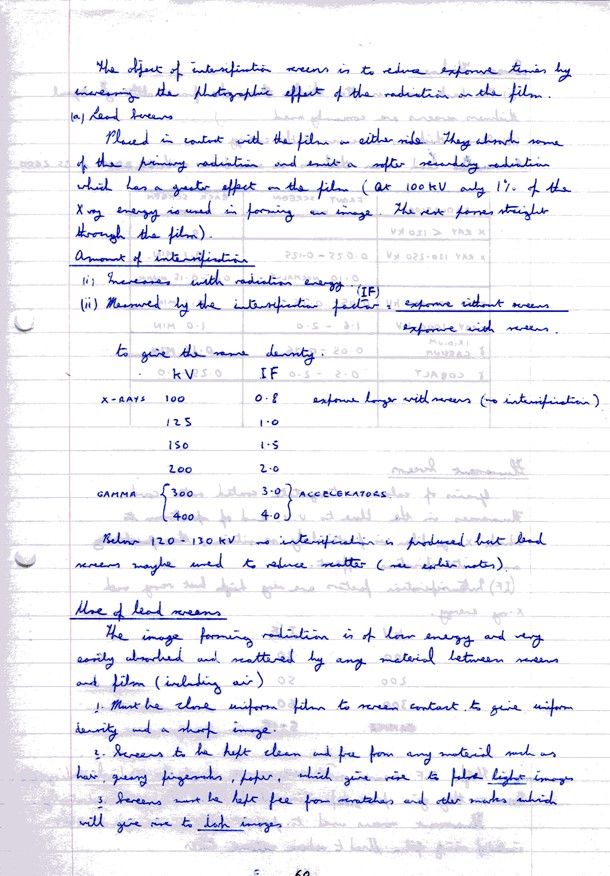 The object of intensification screens is to reduce exposure times by
increasing the photographic effect of the radiation on the film.
(a) Lead Screens
Placed in contact with the film on either side They absorb some
of the primary radiation and emit a softer secondary radiation
which has a greater effect on the film (at 100 KV only 1% of the
X ray energy is used in forming an image. The rest passes straight
through the film).
Amount of intensification
(i) Increases with radiation energy.
(ii) Measured by the intensification factor (IF) = exposure without screens
exposure with screens.
to give the same density.
KV IF
X-RAYS 100 0.8 exposure longer with screens (no intensification)
125 1.0
150 1.5
200 2.0
GAMMA { 300 3.0 } ACCELERATORS
400 4.0
Below 120-130 KV no intensification is produced but lead
screens maybe used to reduce scatter (see earlier notes).
Use of lead screens
The image forming radiation is of low energy and very
easily absorbed and scattered by any material between screens
and film (including air)
1. Must be close uniform film to screen contact to give uniform
density and a sharp image.
2. Screens to be kept clean and free from any material such as
hair, greasy fingermarks, paper, which give rise to false light images
3 Screens must be kept free from scratches and other marks which
will give rise to dark images
60